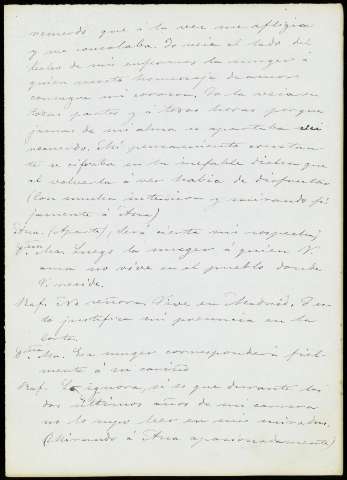 recuerdo que á la vez me afligia
y me consolaba. Yo veia al lado del
lecho de mi enfermo la muger á
quien en este homenaje de amor
consagra mi corazon. Yo la veia en
todas partes y á todas horas porque
jamas de mi alma se apartaba su
recuerdo. Mi pensamiento constan
te se cifraba en la inefable dicha que
al volverla á ver habia de disfrutar
(Con mucha intencion y mirando fi
jamente á Ana)
Ana. (Aparte), Será cierta mi sospecha?
Ma. Luego la muger á quien V.
ama no vive en el pueblo donde
V. reside.
Raf. No señora. Vive en Madrid. Y es
to justifica mi presencia en la
corte.
Ma. Esa muger corresponderá fiel-
mente á su cariño
Raf. Lo ignora, si es que durante los
dos últimos años de mi carrera
no lo supo leer en mis miradas.
(Mirando á Ana apasionadamente)